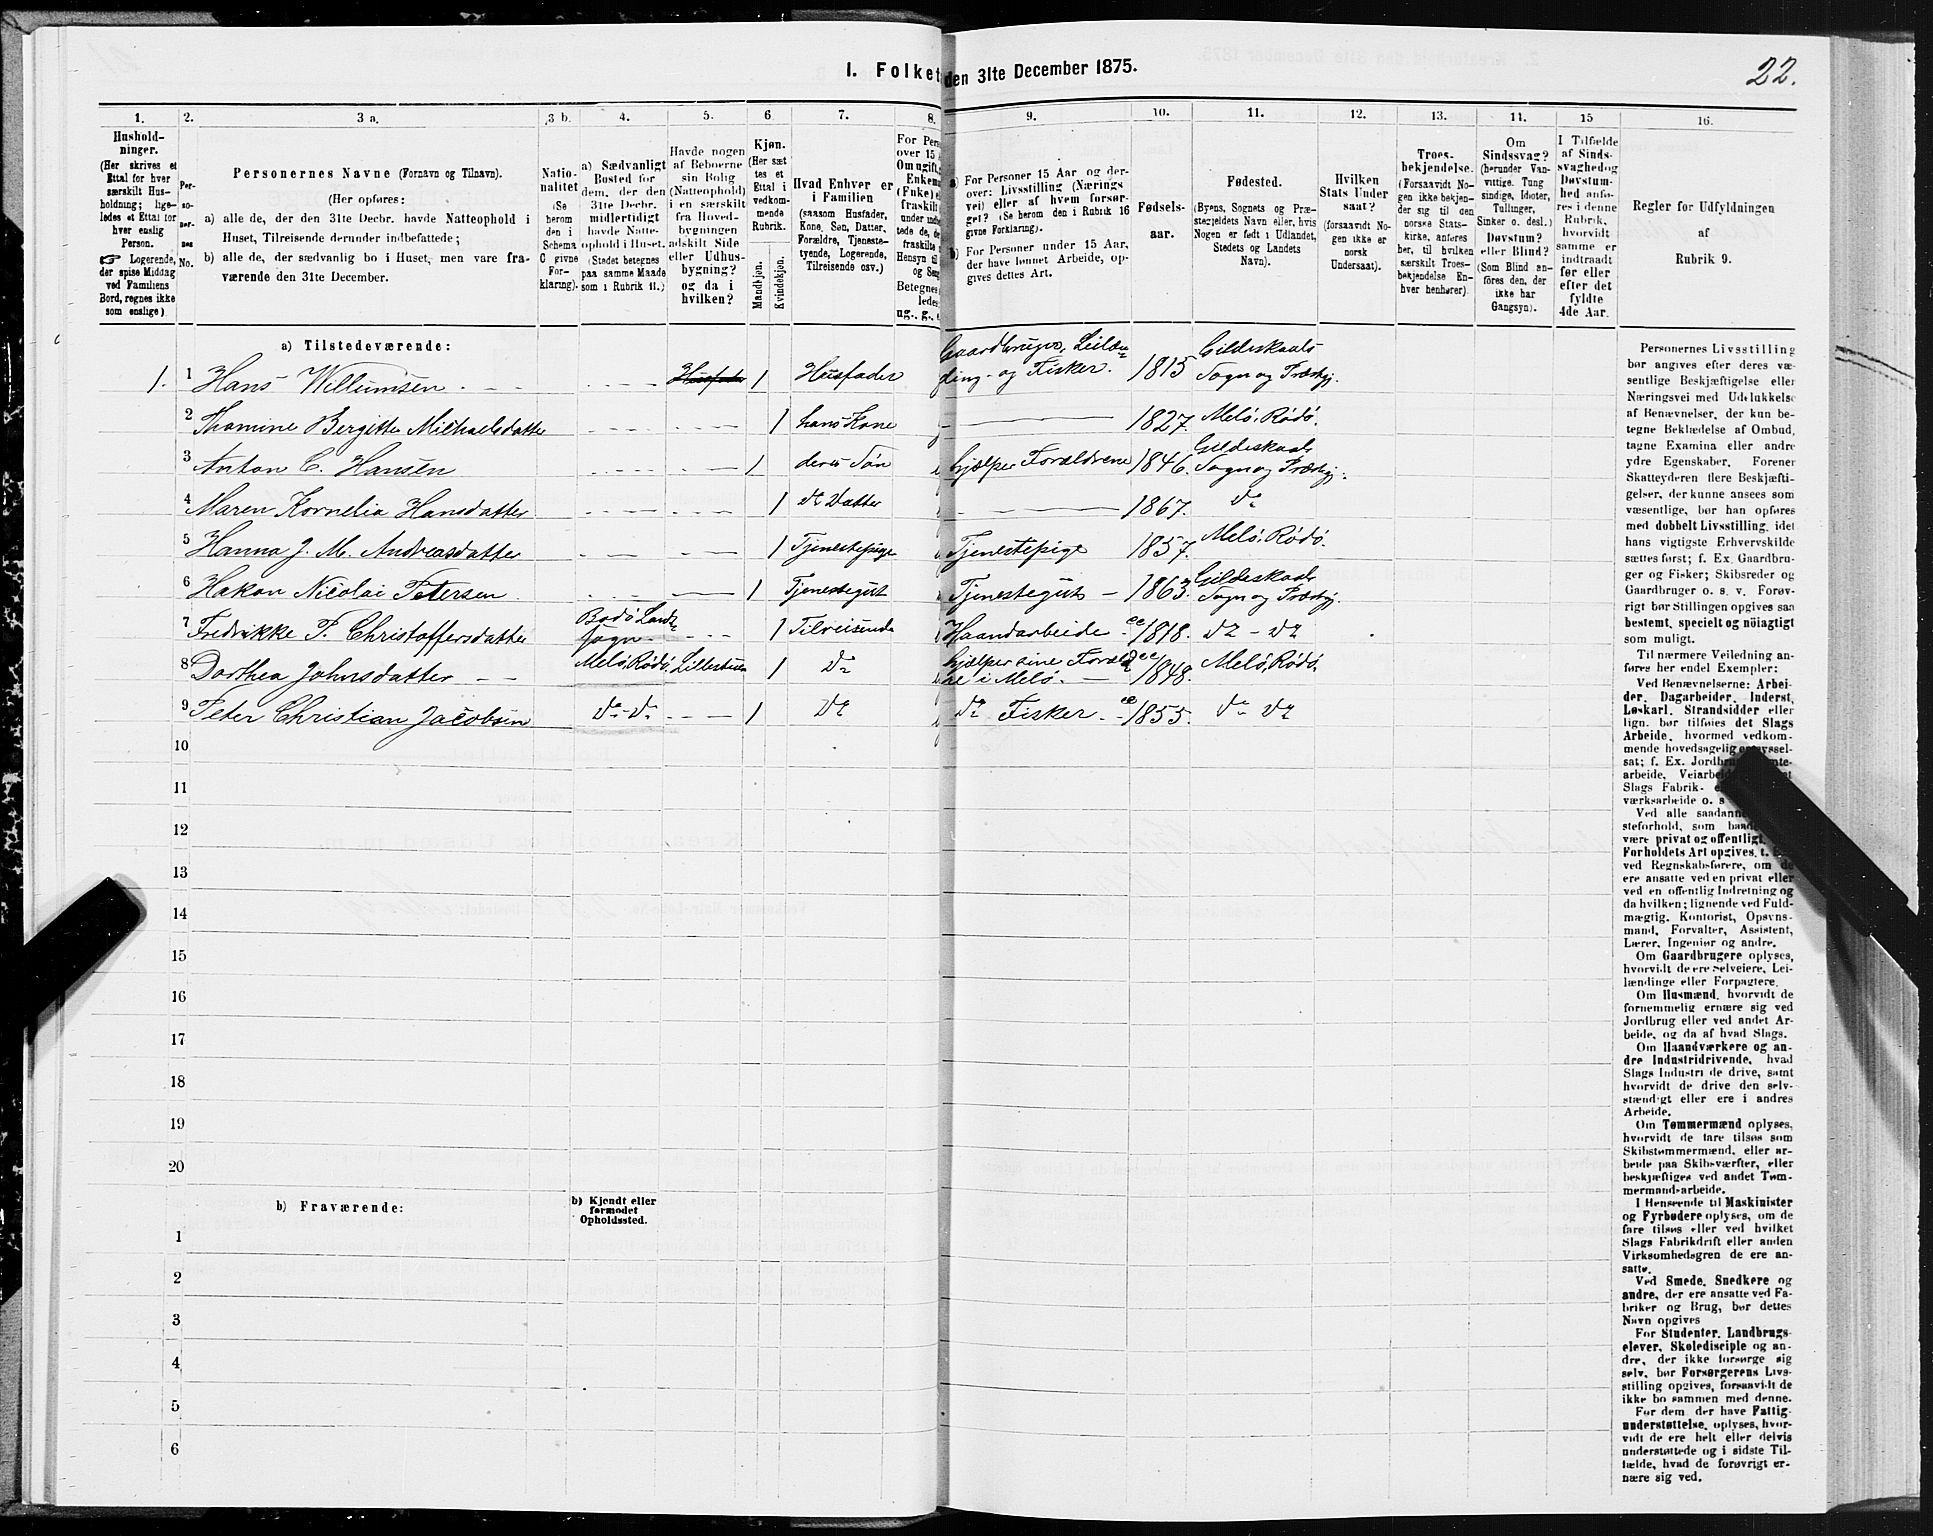 I. Folket den 31te December 1875.
22.
1. 2. 3 a. 3 b. 4. 5. 6 7. 8. 9. 10. 11. 12. 13. 14. 15 16.
Hushold-
ninger.
(Her skrives et
Ettal for hver
særskilt Hus-
holdning; lige-
ledes et Ettal for
hver enslig
Person.
☞ Logerende,
der spise Middag
ved Familiens
Bord, regnes ikke
som enslige).
Per-
so-
ner-
nes
No.
Personernes Navne (Fornavn og Tilnavn).
(Her opføres:
a) alle de, der den 31te Decbr. havde Natteophold i
Huset, Tilreisende derunder indbefattede;
b) alle de, der sædvanlig bo i Huset, men vare fra-
værende den 31te December.
Natio-
nalitet
(Se
herom
den i
Schema
C givne
For-
klaring).
a) Sædvanligt
Bosted for
dem, der den
31te Decbr.
midlertidigt
havde Natte-
ophold i Huset.
(Stedet betegnes
paa samme Maade
som i Rubrik 11.)
Havde nogen
af Beboerne
sin Bolig
(Natteophold)
i en særskilt
fra Hoved-
bygningen
adskilt Side
eller Udhus-
bygning?
og da i
hvilken?
Kjøn.
(Her sæt
tes et
Ettal i
vedkom-
mende
Rubrik.
Mandkjøn.
Kvindekjøn.
Hvad Enhver er
i Familien
(saasom Husfader,
Kone, Søn, Datter,
Forældre, Tjeneste-
tyende, Logerende,
Tilreisende osv.)
For Pers
over 15
Om ugift,
Enkem
(Enke)
fraskilt
ug., g.,
a) For Personer 15 Aar og der-
over: Livsstilling (Nærings
vei) eller af hvem forsør-
get? (Se herom den i Rubrik 16
givne Forklaring).
b) For Personer under 15 Aar,
der have lønnet Arbeide, op-
gives dettes Art.
Fødsels-
aar.
Fødested.
(Byens, Sognets og Præ-
stegjeldets Navn eller, hvis
Nogen er født i Udlandet,
Stedets og Landets
Navn).
Hvilken
Stats Under
saat?
(forsaavidt No-
gen ikke er
norsk
Undersaat).
Troes-
bekjendelse.
(Forsaavidt No-
gen ikke bekjen-
der sig til den
norske Stats-
kirke, anføres
her, til hvilken
særskilt Troes-
bekjendelse En-
hver henhører).
Om
Sindssvag?
(herunder Van-
vittige, Tung
sindige, Idioter,
Tullinger,
Sinker o. desl.)
Døvstum?
eller Blind?
(Som Blind an-
føres den, der
ikke har
Gangsyn).
I Tilfælde
af Sinds-
svaghed og
Døvstum-
hed anfø-
res i denne
Rubrik,
hvorvidt
samme er
indtraadt
før eller
efter det
fyldte
4de Aar.
Regler for Udfyldningen
af
Rubrik 9.
a) Tilstedeværende:
1. 1 Hans Willumsen Husfader 1 Husfader Gaardbruger, Leilæn-
ding og Fisker. 1815 Gildeskaals
Sogn og Præstgj.
2 Thomine Bergitte Michaelsdatter 1 hans Kone 1827. Melö, Rödö.
3 Anton C. Hansen 1 deres Sön hjælper Forældrene 1846. Gildeskaals
Sogn og Præstgj.
4 Maren Kornelia Hansdatter 1 do Datter 1867. do
5 Hanna J. M. Andreasdatter 1 Tjenestepige Tjenestepige 1857. Melö, Rödö.
6 Hakon Nicolai Petersen 1 Tjenestegut Tjenestegut 1863. Gildeskaals
Sogn og Præstgj.
7 Fredrikke P. Christoffersdatter Bodö Lands
Sogn 1 Tilreisende Haandarbeide 1818. do - do
8 Dorthea Johnsdatter Melö, Rödö. Lillestuen 1 do hjælper sine Foræld
re i Melö. 1848. Melö, Rödö.
9 Peter Christian Jacobsen do - do 1 do do Fisker 1855. do do
10
11
12
13
14
15
16
17
18
19
20
b) Fraværende:
b) Kjendt eller
formodet
Opholdssted.
1
2
3
4
5
6
Personernes Livsstilling
bør angives efter deres væ-
sentlige Beskjæftigelse eller
Næringsvei med Udelukkelse
af Benævnelser, der kun be-
tegne Beklædelse af Ombud,
tagne Examina eller andre
ydre Egenskaber. Forener
Skatteyderen flere Beskjæfti-
gelser, der kunne ansees som
væsentlige, bør han opføres
med dobbelt Livsstilling, idet
hans vigtigste Erhvervskilde
sættes først; f. Ex. Gaardbru-
ger og Fisker; Skibsreder og
Gaardbruger o. s. v. Forøv-
rigt bør Stillingen opgives saa
bestemt, specielt og nøiagtigt
som muligt.
Til nærmere Veiledning an-
føres her endel Exempler:
Ved Benævnelserne: Arbei-
der, Dagarbeider, Inderst,
Løskarl, Strandsidder eller
lign. bør tilføies det Slags
Arbeide, hvormed vedkom-
mende hovedsagelig er syssel-
sat; f. Ex. Jordbru
arbeide, Veiarbeid
Slags Fabrik-
værksarbeide o. s
Ved alle saadanne
steforhold, som
være privat og offentligt,
Forholdets Art opgives, t.
ved Regnskabsførere, om de
ere ansatte ved en privat eller
ved en offentlig Indretning og
da hvilken; lignende ved Fuld-
mægtig, Kontorist, Opsyns-
mand, Forvalter, Assistent,
Lærer, Ingeniør og andre.
Om Gaardbrugere oplyses,
hvorvidt de ere Selveiere, Lei-
lændinge eller Forpagtere.
Om Husmænd, hvorvidt de
fornemmelig ernære sig ved
Jordbrug eller ved andet Ar-
beide, og da af hvad Slags.
Om Haandværkere og an-
dre Industridrivende, hvad
Slags Industri de drive, samt
hvorvidt de drive den selv-
stændigt eller ere i andres
Arbeide.
Om Tømmermænd oplyses,
hvorvidt de fare tilsøs som
Skibstømmermænd, eller ar-
beide paa Skibsværfter, eller
beskjæftiges ved andet Tøm-
mermandsarbeide.
I Henseende til Maskinister
og Fyrbødere oplyses, om de
fare tilsøs eller ved hvilket
Slags Fabrikdrift eller anden
Virksomhedsgren de ere an-
satte.
Ved Smede, Snedkere og
andre, der ere ansatte ved Fa-
briker og Brug, bør dettes
Navn opgives
For Studenter, Landbrugs-
elever, Skoledisciple og an-
dre, der ikke forsørge sig
selv, bør Forsørgerens Livs-
stilling opgives, forsaavidt de
ikke bo sammen med denne.
For dem, der have Fattig-
understøttelse, oplyses, hvor-
vidt de ere helt eller delvis
understøttede og i sidste Til-
fælde, hvad de forøvrigt er-
nære sig ved.